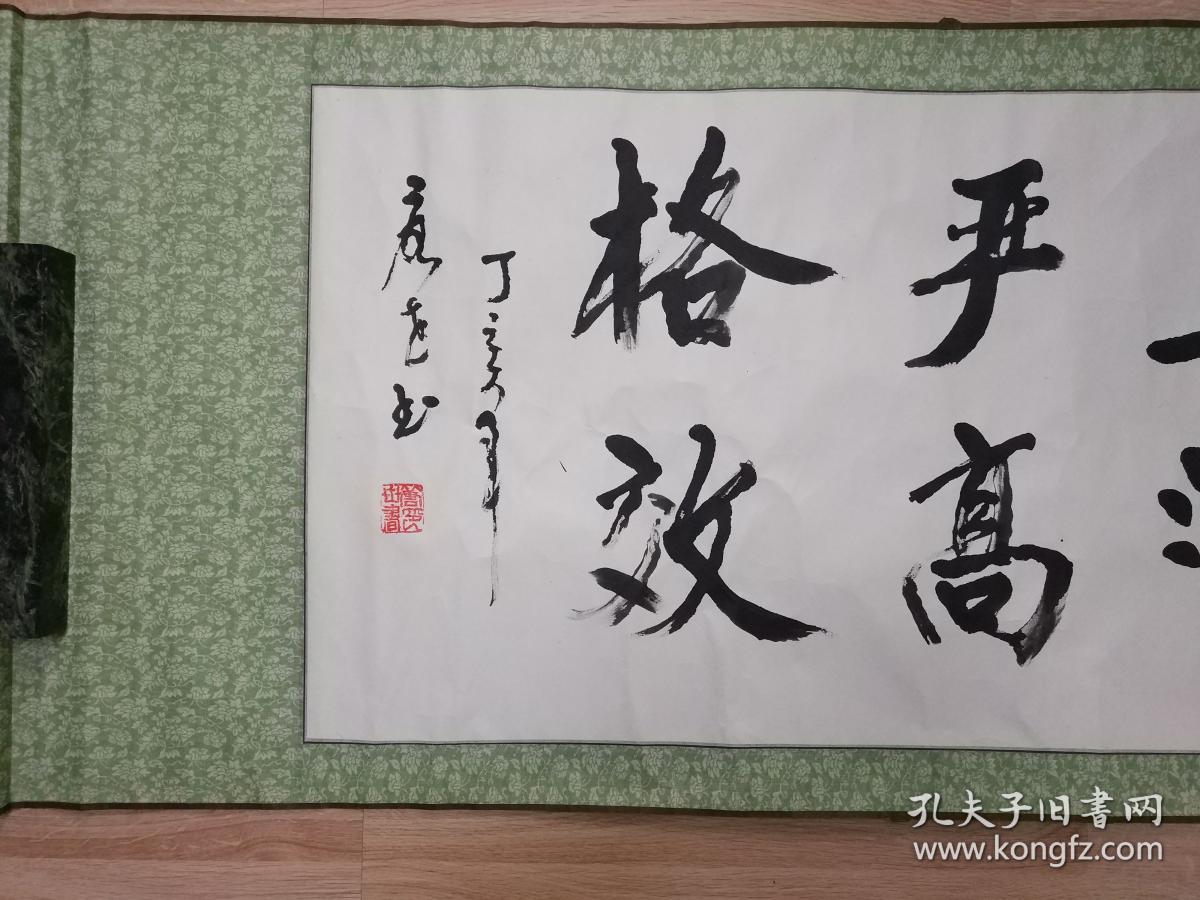 严高
格效
丁亥年
书
孔夫子旧書网
www.kongfz.com